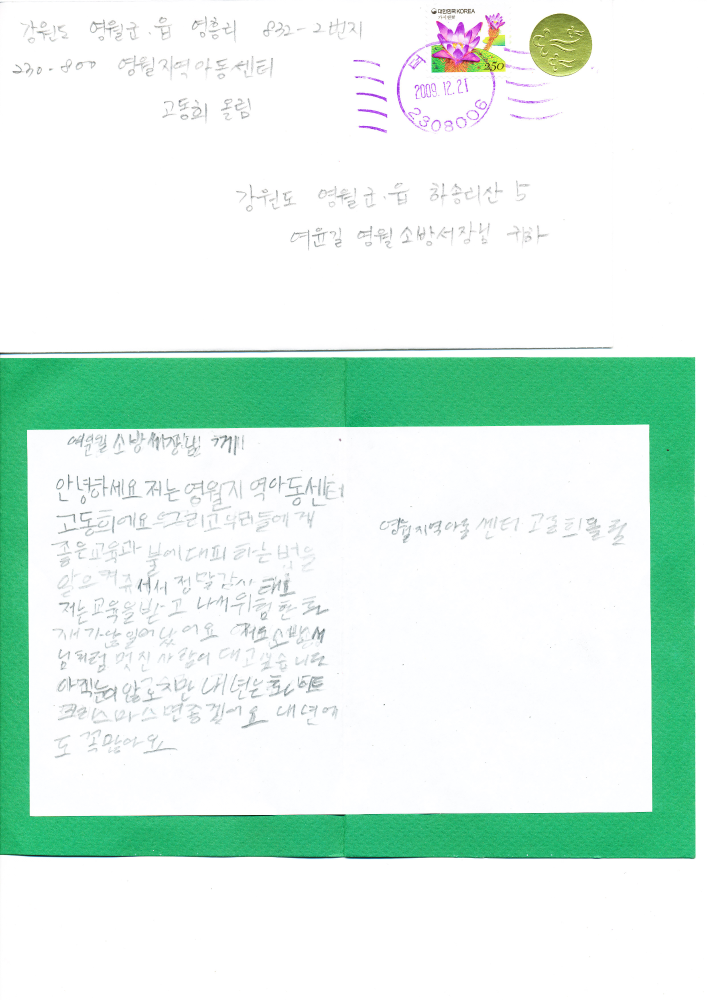 강원도 영월군·읍 영흥리 832-2번지
230-800 영월지역아동센터
고동희 올림
대한민국 KOREA
250
2009.12.21
2308006
강원도 영월군·읍 하송리산 5
여윤길 영월소방서장님 귀하
여윤길 소방서장님 께
안녕하세요 저는 영월지역아동센터
고동희에요 그리고 우리들에게
좋은교육과 불에대피 하는 법을
알으켜주셔서 정말감사
저는교육을받고 나서위험한화
재가 안일어났어요 저도소방서
님처럼 멋진사람이 대고싶습니다
아직눈이 않오지만 내년는화이트
크리스마스 면좋겠어요 내년에
도 꼭많아요
영월지역아동 센터 고동희올림